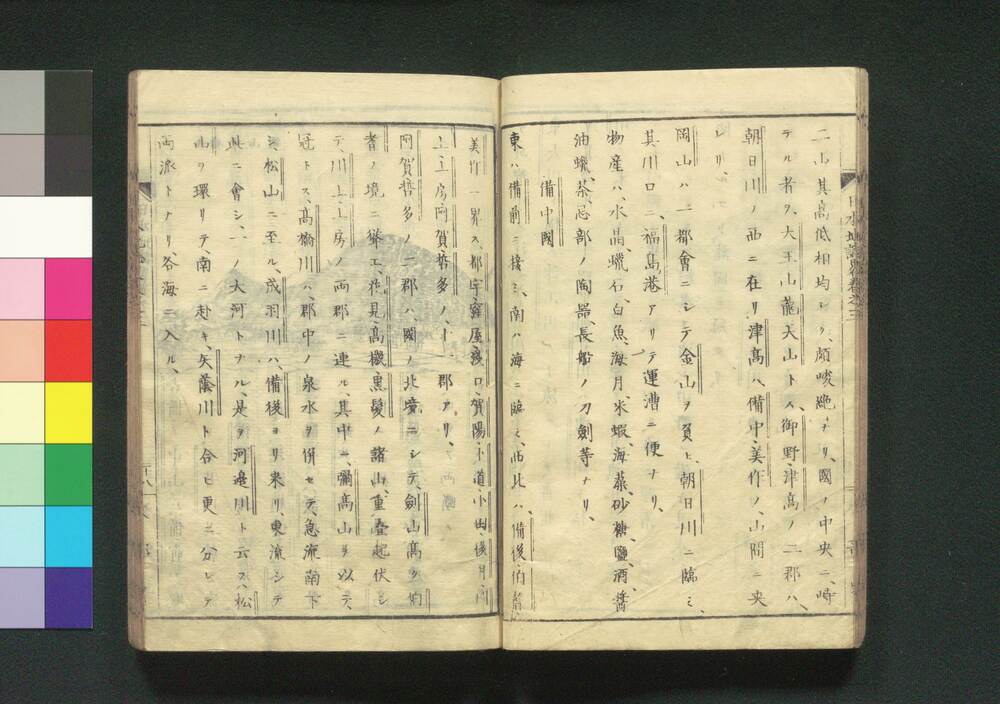 二山其高低相均シク、頗峻絶ナリ、國ノ中央ニ、峙
テル者ヲ、大王山龍天山トス、御野、津高ノ二郡ハ、
朝日川ノ西ニ在リ津高ハ、備中、美作ノ、山間ニ夾
レリ、
岡山ハ一都會ニシテ金山ヲ負ヒ、朝日川ニ臨ミ、
其川口ニ、福島港アリテ運漕ニ便ナリ、
物産ハ、水晶、蠟石、白魚、海月、米蝦、海藻、砂糖、鹽、酒、醬
油、蠟、茶、忌部ノ陶器、長船ノ刀劍等ナリ、
備中國
東ハ備前ニ接シ、南ハ海ニ臨ミ、西北ハ、備後、伯耆、
美作ニ界ス、都宇、窪屋、淺口、賀陽、下道、小田、後月、
上房、阿賀、哲多ノ、十一郡アリ、
阿賀、哲多ノ二郡ハ、國ノ北境ニシテ、劍山高ク伯
耆ノ境ニ聳エ、花見、高機、黒髮ノ諸山、重疊起伏シ
テ、川上、上房ノ両郡ニ連ル、其中ニ彌高山ヲ以テ、
冠トス、高橋川ハ、郡中ノ泉水ヲ併セテ、急流南下
シ、松山ニ至ル、成羽川ハ、備後ヨリ來リ東流シテ
此ニ會シ、一ノ大河トナル、是ヲ河邊川ト云ス、松
山ヲ環リテ、南ニ赴キ、矢蔭川ト合ヒ更ニ分レテ
両派トナリ、各海ニ入ル、